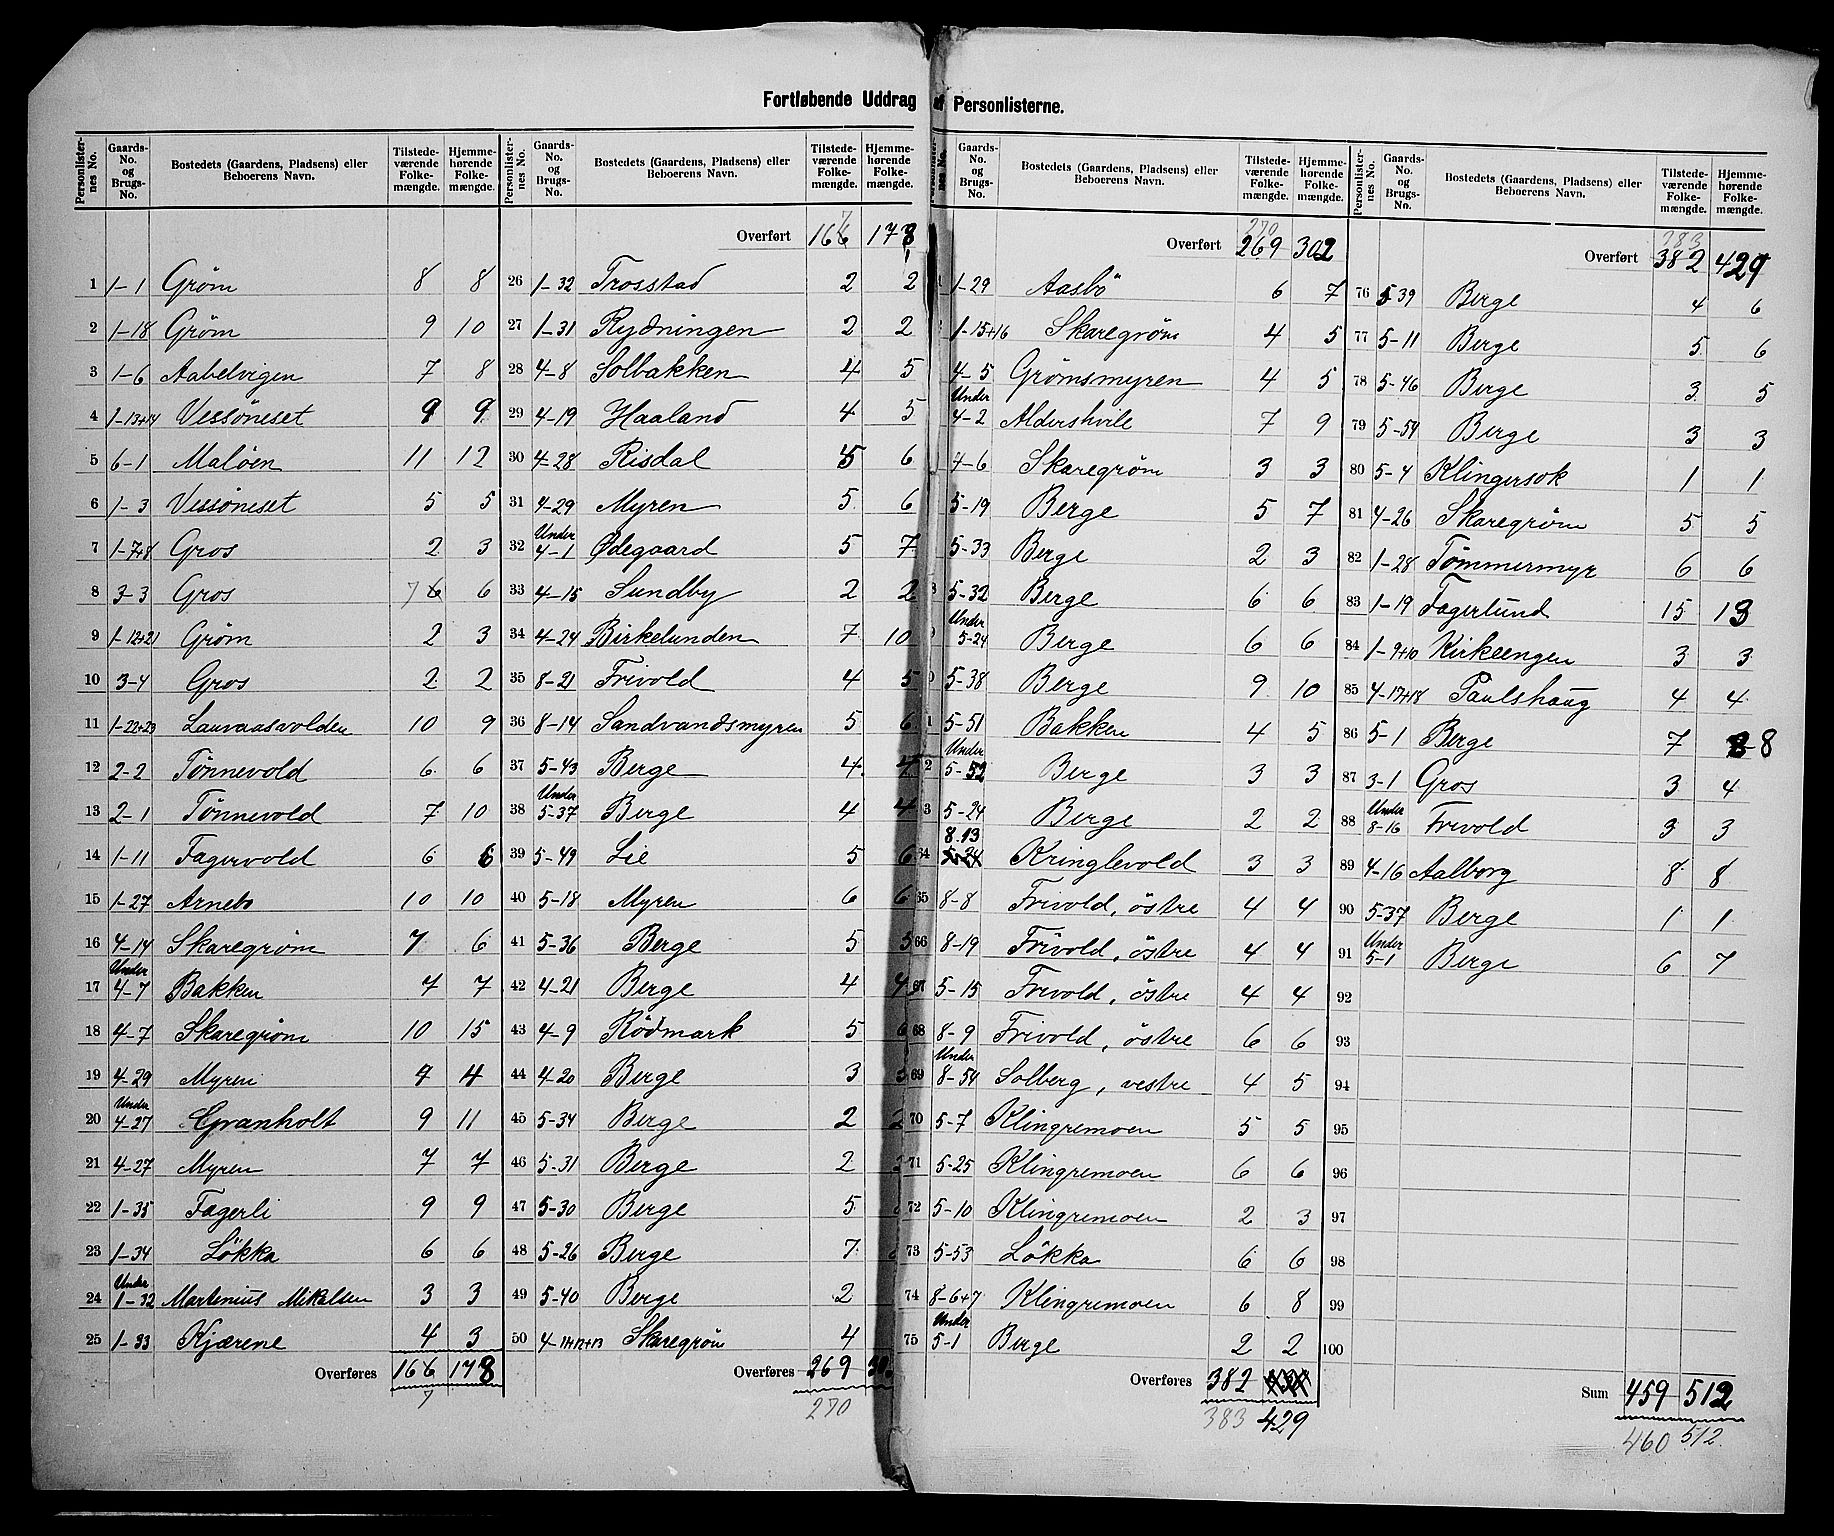 Fortløbende Uddrag af Personlisterne.
Personlisternes No. Gaards-No. og Brugs-No. Bostedets (Gaardens, Pladsens) eller Beboerens Navn. Tilstedeværende Folkemængde. Hjemmehørende Folkemængde.
1 1-1 Grøm 8 8
2 1-18 Grøm 9 10
3 1-6 Aabelvigen 7 8
4 1-13+14 Vessøneset 9 9
5 6-1 Maløen 11 12
6 1-3 Vessøneset 5 5
7 1-7+8 Gros 2 3
8 3-3 Gros 7 6 6
9 1-12+21 Grøm 2 3
10 3-4 Gros 2 2
11 1-22+23 Lauvaasvolden 10 9
12 2-2 Tønnevold 6 6
13 2-1 Tønnevold 7 10
14 1-11 Fagervold 6 6
15 1-27 Arnebo 10 10
16 4-14 Skaregrøm 7 6
17 Under 4-7 Bakken 7 7
18 4-7 Skaregrøm 10 15
19 4-29 Myren 4 4
20 Under 4-27 Granholt 9 11
21 4-27 Myren 7 7
22 1-35 Fagerli 9 9
23 1-34 Løkka 6 6
24 Under 1-32 Martinius Mikalsen 3 3
25 1-33 Kjærene 4 3
Overføres 166 178
7
Personlisternes No. Gaards-No. og Brugs-No. Bostedets (Gaardens, Pladsens) eller Beboerens Navn. Tilstedeværende Folkemængde. Hjemmehørende Folkemængde.
7
Overført 166 178
26 1-32 Trosstad 2 2
27 1-31 Rydningen 2 2
28 4-8 Solbakken 4 5
29 4-19 Haaland 4 5
30 4-28 Risdal 5 6
31 4-29 Myren 5 6
32 Under 4-1 Ødegaard 5 7
33 4-15 Sundby 2 2
34 4-24 Birkelunden 7 10
35 8-21 Frivold 4 5
36 8-14 Sandvandsmyren 5 6
37 5-43 Berge 4 4
38 Under 5-37 Berge 4 4
39 5-49 Lie 5 6
40 5-18 Myren 6 6
41 5-36 Berge 5 5
42 4-21 Berge 4 4
43 4-9 Rödmark 5 6
44 4-20 Berge 3 3
45 5-34 Berge 2 2
46 5-31 Berge 2
47 5-30 Berge 5
48 5-26 Berge 7
49 5-40 Berge 2
50 4-11+12+13 Skaregrøm 4
Overføres 269
270
Gaards-No. og Brugs-No. Bostedets (Gaardens, Pladsens) eller Beboerens Navn. Tilstedeværende Folkemængde. Hjemmehørende Folkemængde.
270
Overført 269 302
1-29 Aasbö 6 7
1-15+16 Skaregrøm 4 5
4-5 Grømsmyren 4 5
Under 4-2 Aldershvile 7 9
4-6 Skaregrøm 3 3
5-19 Berge 5 7
5-33 Berge 2 3
5-32 Berge 6 6
Under 5-24 Berge 6 6
5-38 Berge 9 10
5-51 Bakken 4 5
Under 5-52 Berge 3 3
5-24 Berge 2 2
64 8.13 Kringlevold 3 3
65 8-8 Frivold, östre 4 4
66 8-19 Frivold, östre 4 4
67 5-15 Frivold, östre 4 4
68 8-9 Frivold, östre 6 6
69 Under 8-54 Solberg, vestre 4 5
70 5-7 Klingremoen 5 5
71 5-25 Klingremoen 6 6
72 5-10 Klingremoen 2 3
73 5-53 Løkka 6 6
74 8-6+7 Klingremoen 6 8
75 Under 5-1 Berge 2 2
Overføres 382
383 429
Personlisternes No. Gaards-No. og Brugs-No. Bostedets (Gaardens, Pladsens) eller Beboerens Navn. Tilstedeværende Folkemængde. Hjemmehørende Folkemængde.
383
Overført 382 429
76 5-39 Berge 4 6
77 5-11 Berge 5 6
78 5-46 Berge 3 5
79 5-54 Berge 3 3
80 5-4 Klingersok 1 1
81 4-26 Skaregrøm 5 5
82 1-28 Tømmermyr 6 6
83 1-19 Fagerlund 15 13
84 1-9+10 Kirkeengen 3 3
85 4-17+18 Paulshaug 4 4
86 5-1 Berge 7 8
87 3-1 Gros 3 4
88 Under 8-16 Frivold 3 3
89 4-16 Aalborg 8 8
90 5-37 Berge 1 1
91 Under 5-1 Berge 6 7
92
93
94
95
96
97
98
99
100
Sum 459 512
460 512